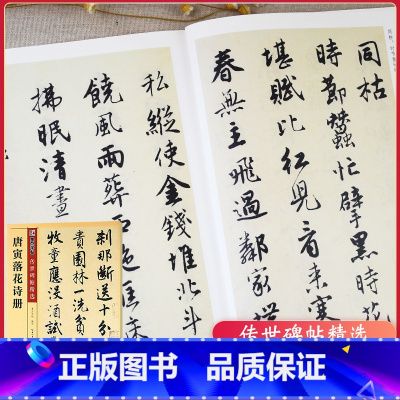 同枯
時節蠶忙擘黑時花
堪賦比紅兒看來寒
春無主飛過鄰家
私縱使金錢堆北斗
饒風雨葬西施
拂眠清晝
传世碑帖精选
唐寅落花诗册
剎那斷送十分
貴園林一洗貧
牧童應浸酒試
传世碑帖精选